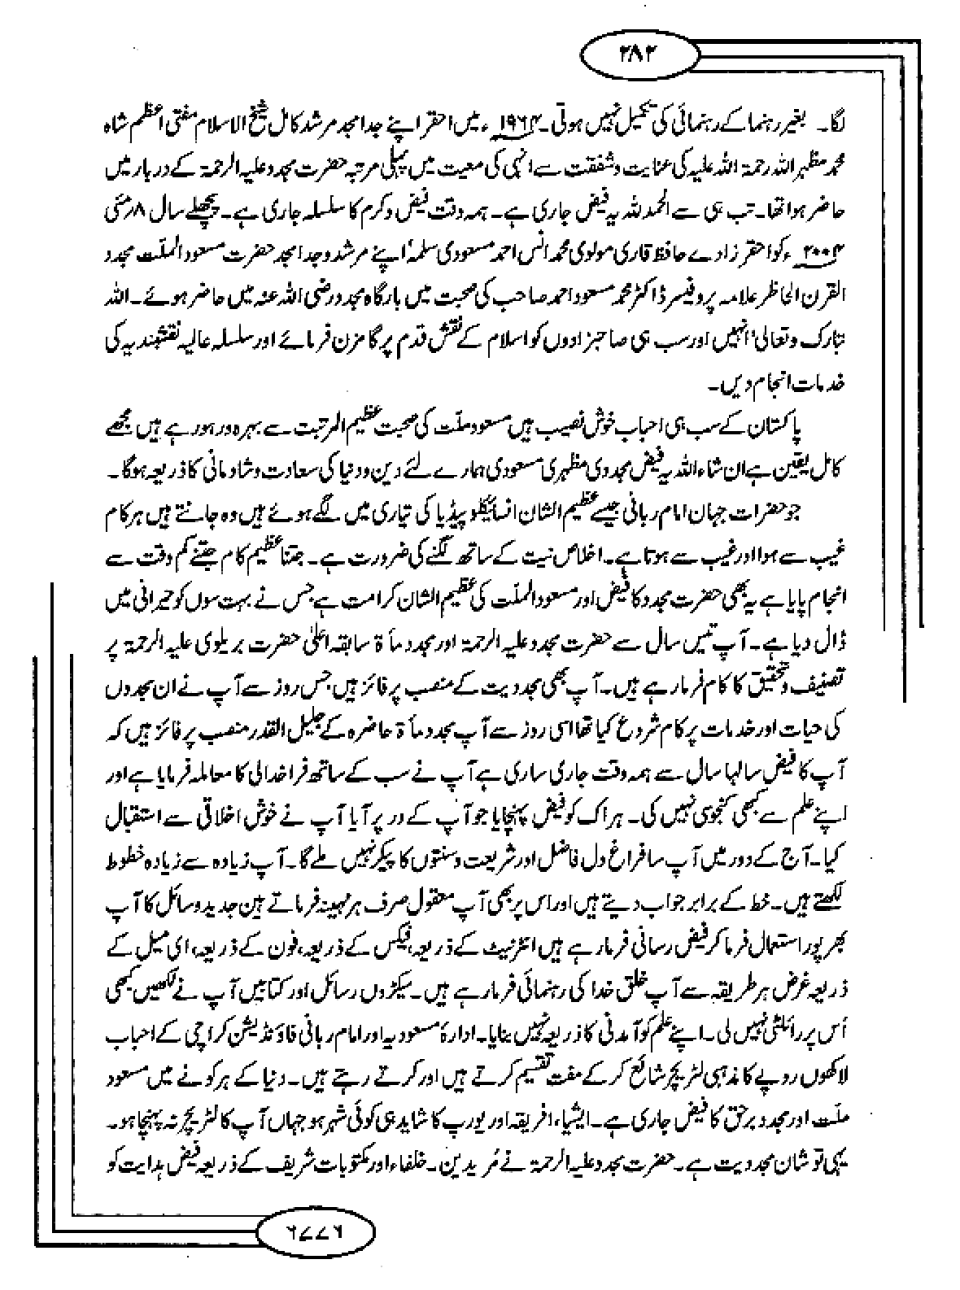 ۲۸۲
لگا۔ بغیر رہنما کے رہنمائی کی تکمیل نہیں ہوتی۔ ۱۹۶۴ء میں احقر اپنے جد امجد مرشد کامل شیخ الاسلام مفتی اعظم شاہ
محمد مظہر اللہ رحمۃ اللہ علیہ کی عنایت وشفقت سے انہی کی معیت میں پہلی مرتبہ حضرت مجدد علیہ الرحمۃ کے دربار میں
حاضر ہوا تھا۔ تب ہی سے الحمد للہ یہ فیض جاری ہے۔ ہمہ وقت فیض وکرم کا سلسلہ جاری ہے۔ پچھلے سال ۸؍مئی
۲۰۰۴ء کو احقر زادے حافظ قاری مولوی محمد انس احمد مسعودی سلمہٗ اپنے مرشد وجد امجد حضرت مسعود الملّت مجدد
القرن الحاظر علامہ پروفیسر ڈاکٹر محمد مسعود احمد صاحب کی صحبت میں بارگاہ مجدد رضی اللہ عنہ میں حاضر ہوئے۔ اللہ
تبارک وتعالیٰ انہیں اور سب ہی صاحبزادوں کو اسلام کے نقش قدم پر گامزن فرمائے اور سلسلہ عالیہ نقشبندیہ کی
خدمات انجام دیں۔
پاکستان کے سب ہی احباب خوش نصیب ہیں مسعود ملّت کی صحبت عظیم المرتبت سے بہرہ ور ہورہے ہیں مجھے
کامل یقین ہے ان شاء اللہ یہ فیض مجددی مظہری مسعودی ہمارے لئے دین ودنیا کی سعادت وشادمانی کا ذریعہ ہوگا۔
جو حضرات جہان امام ربانی جیسے عظیم الشان انسائیکلو پیڈیا کی تیاری میں لگے ہوئے ہیں وہ جانتے ہیں ہر کام
غیب سے ہوا اور غیب سے ہوتا ہے۔ اخلاص نیت کے ساتھ لگنے کی ضرورت ہے۔ جتنا عظیم کام جتنے کم وقت سے
انجام پایا ہے یہ بھی حضرت مجدد کا فیض اور مسعود الملّت کی عظیم الشان کرامت ہے جس نے بہت سوں کو حیرانی میں
ڈال دیا ہے۔ آپ تیس سال سے حضرت مجدد علیہ الرحمۃ اور مجدد مأۃ سابقہ اعلیٰ حضرت بریلوی علیہ الرحمۃ پر
تصنیف وتحقیق کا کام فرما رہے ہیں۔ آپ بھی مجددیت کے منصب پر فائز ہیں جس روز سے آپ نے ان مجددوں
کی حیات اور خدمات پر کام شروع کیا تھا اسی روز سے آپ مجدد مأۃ حاضرہ کے جلیل القدر منصب پر فائز ہیں کہ
آپ کا فیض سالہا سال سے ہمہ وقت جاری ساری ہے آپ نے سب کے ساتھ فراخدالی کا معاملہ فرمایا ہے اور
اپنے علم سے کبھی کنجوسی نہیں کی۔ ہر اک کو فیض پہنچایا جو آپ کے در پر آیا آپ نے خوش اخلاقی سے استقبال
کیا۔ آج کے دور میں آپ سا فراغ دل فاضل اور شریعت وسنتوں کا پیکر نہیں ملے گا۔ آپ زیادہ سے زیادہ خطوط
لکھتے ہیں۔ خط کے برابر جواب دیتے ہیں اور اس پر بھی آپ معقول صرف ہر مہینہ فرماتے ہین جدید وسائل کا آپ
بھر پور استعمال فرما کر فیض رسانی فرما رہے ہیں انٹرنیٹ کے ذریعہ، فیکس کے ذریعہ، فون کے ذریعہ، ای میل کے
ذریعہ غرض ہر طریقہ سے آپ خلق خدا کی رہنمائی فرما رہے ہیں۔ سیکڑوں رسائل اور کتابیں آپ نے لکھیں کبھی
اُس پر رائلٹی نہیں لی۔ اپنے علم کو آمدنی کا ذریعہ نہیں بنایا۔ ادارۂ مسعودیہ اور امام ربانی فاؤنڈیشن کراچی کے احباب
لاکھوں روپے کا مذہبی لٹریچر شائع کرکے مفت تقسیم کرتے ہیں اور کرتے رہتے ہیں۔ دنیا کے ہر کونے میں مسعود
ملّت اور مجدد برحق کا فیض جاری ہے۔ ایشیاء، افریقہ اور یورپ کا شاید ہی کوئی شہر ہو جہاں آپ کا لٹریچر نہ پہنچا ہو۔
یہی تو شان مجددیت ہے۔ حضرت مجدد علیہ الرحمۃ نے مُریدین۔ خلفاء اور مکتوبات شریف کے ذریعہ فیض ہدایت کو